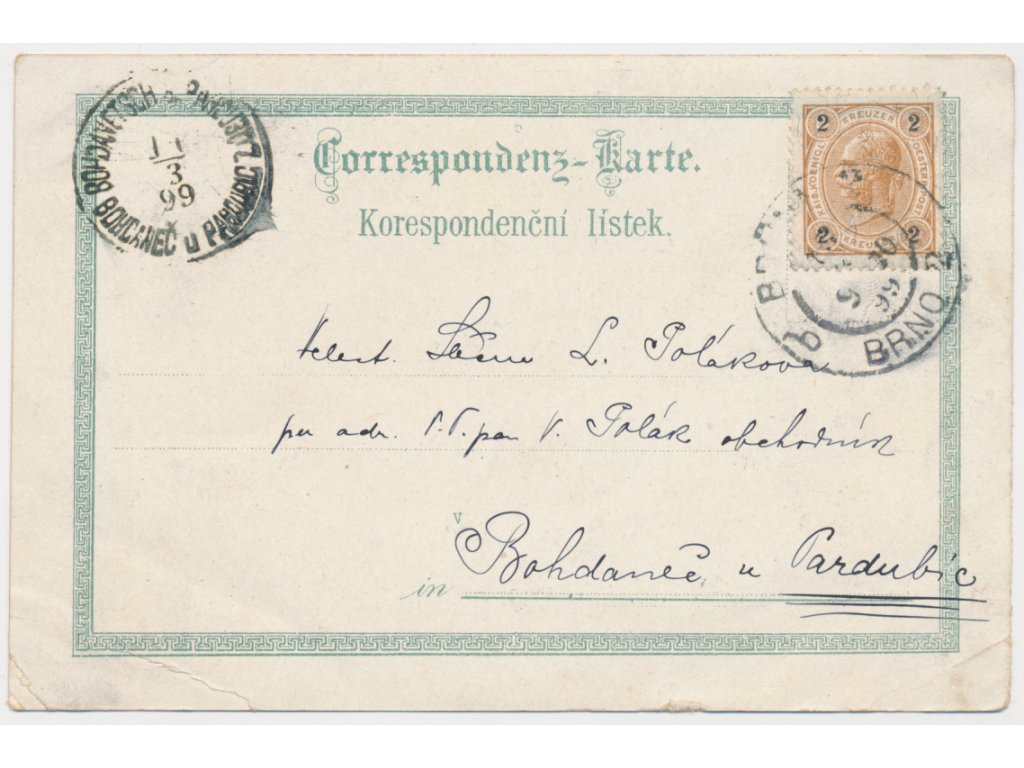 BOHDANETSCH
11
3
99
BOHDANEČ u PARDUBIC
Correspondenz-Karte.
Korespondenční lístek.
2 KREUZER 2
2 KREUZER 2
BRNO
99
Velect. Slečna L. Polákova
per adr. P. T. pan V. Polák obchodník
v
in Bohdaneč u Pardubic